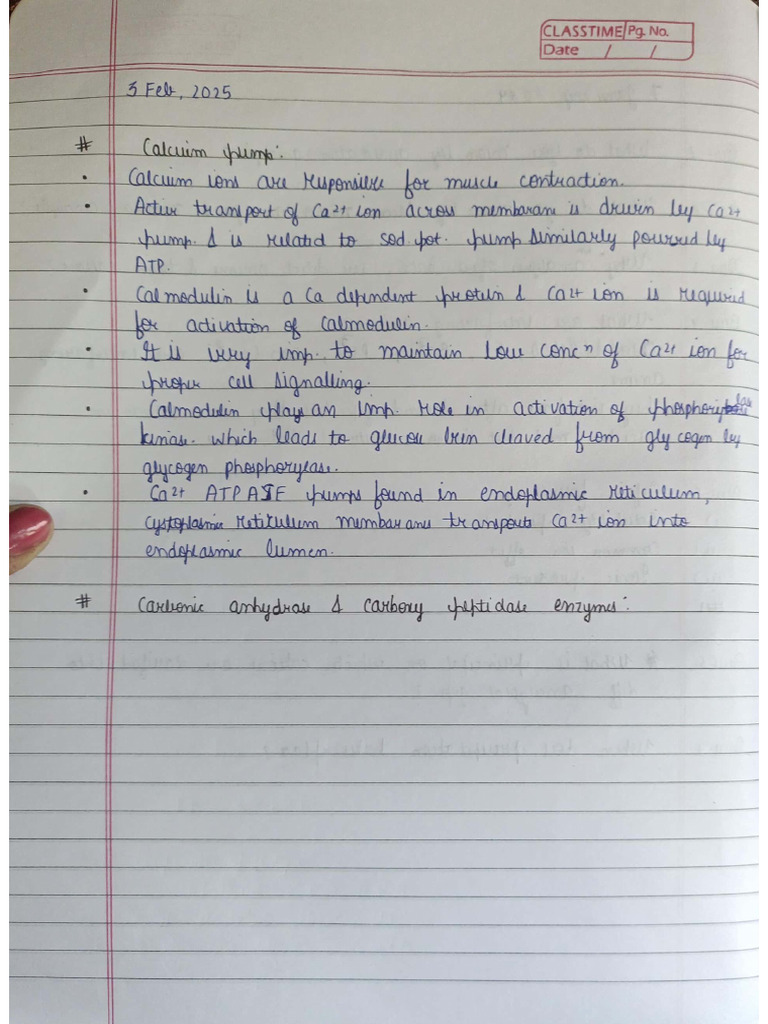 CLASSTIME Pg. No.
Date / /
3 Feb, 2025
# Calcuim pump:
• Calcium ions are responsible for muscle contraction.
• Active transport of Ca2+ ion across membarane is driven by Ca2+
pump. & is related to sod. pot. pump similarly powered by
ATP.
• Calmodulin is a Ca dependent protein & Ca2+ ion is required
for activation of calmodulin.
• It is very imp. to maintain low concn of Ca2+ ion for
proper cell signalling.
• Calmodulin play an imp. role in activation of
kinase. which leads to glucose bein cleaved from glycogen by
glycogen phosphorylase.
• Ca2+ ATPASE pumps found in endoplasmic reticulum,
reticulum membarane transports Ca2+ ion into
endoplasmic lumen.
# Carbonic anhydrase & carboxy peptidase enzymes: